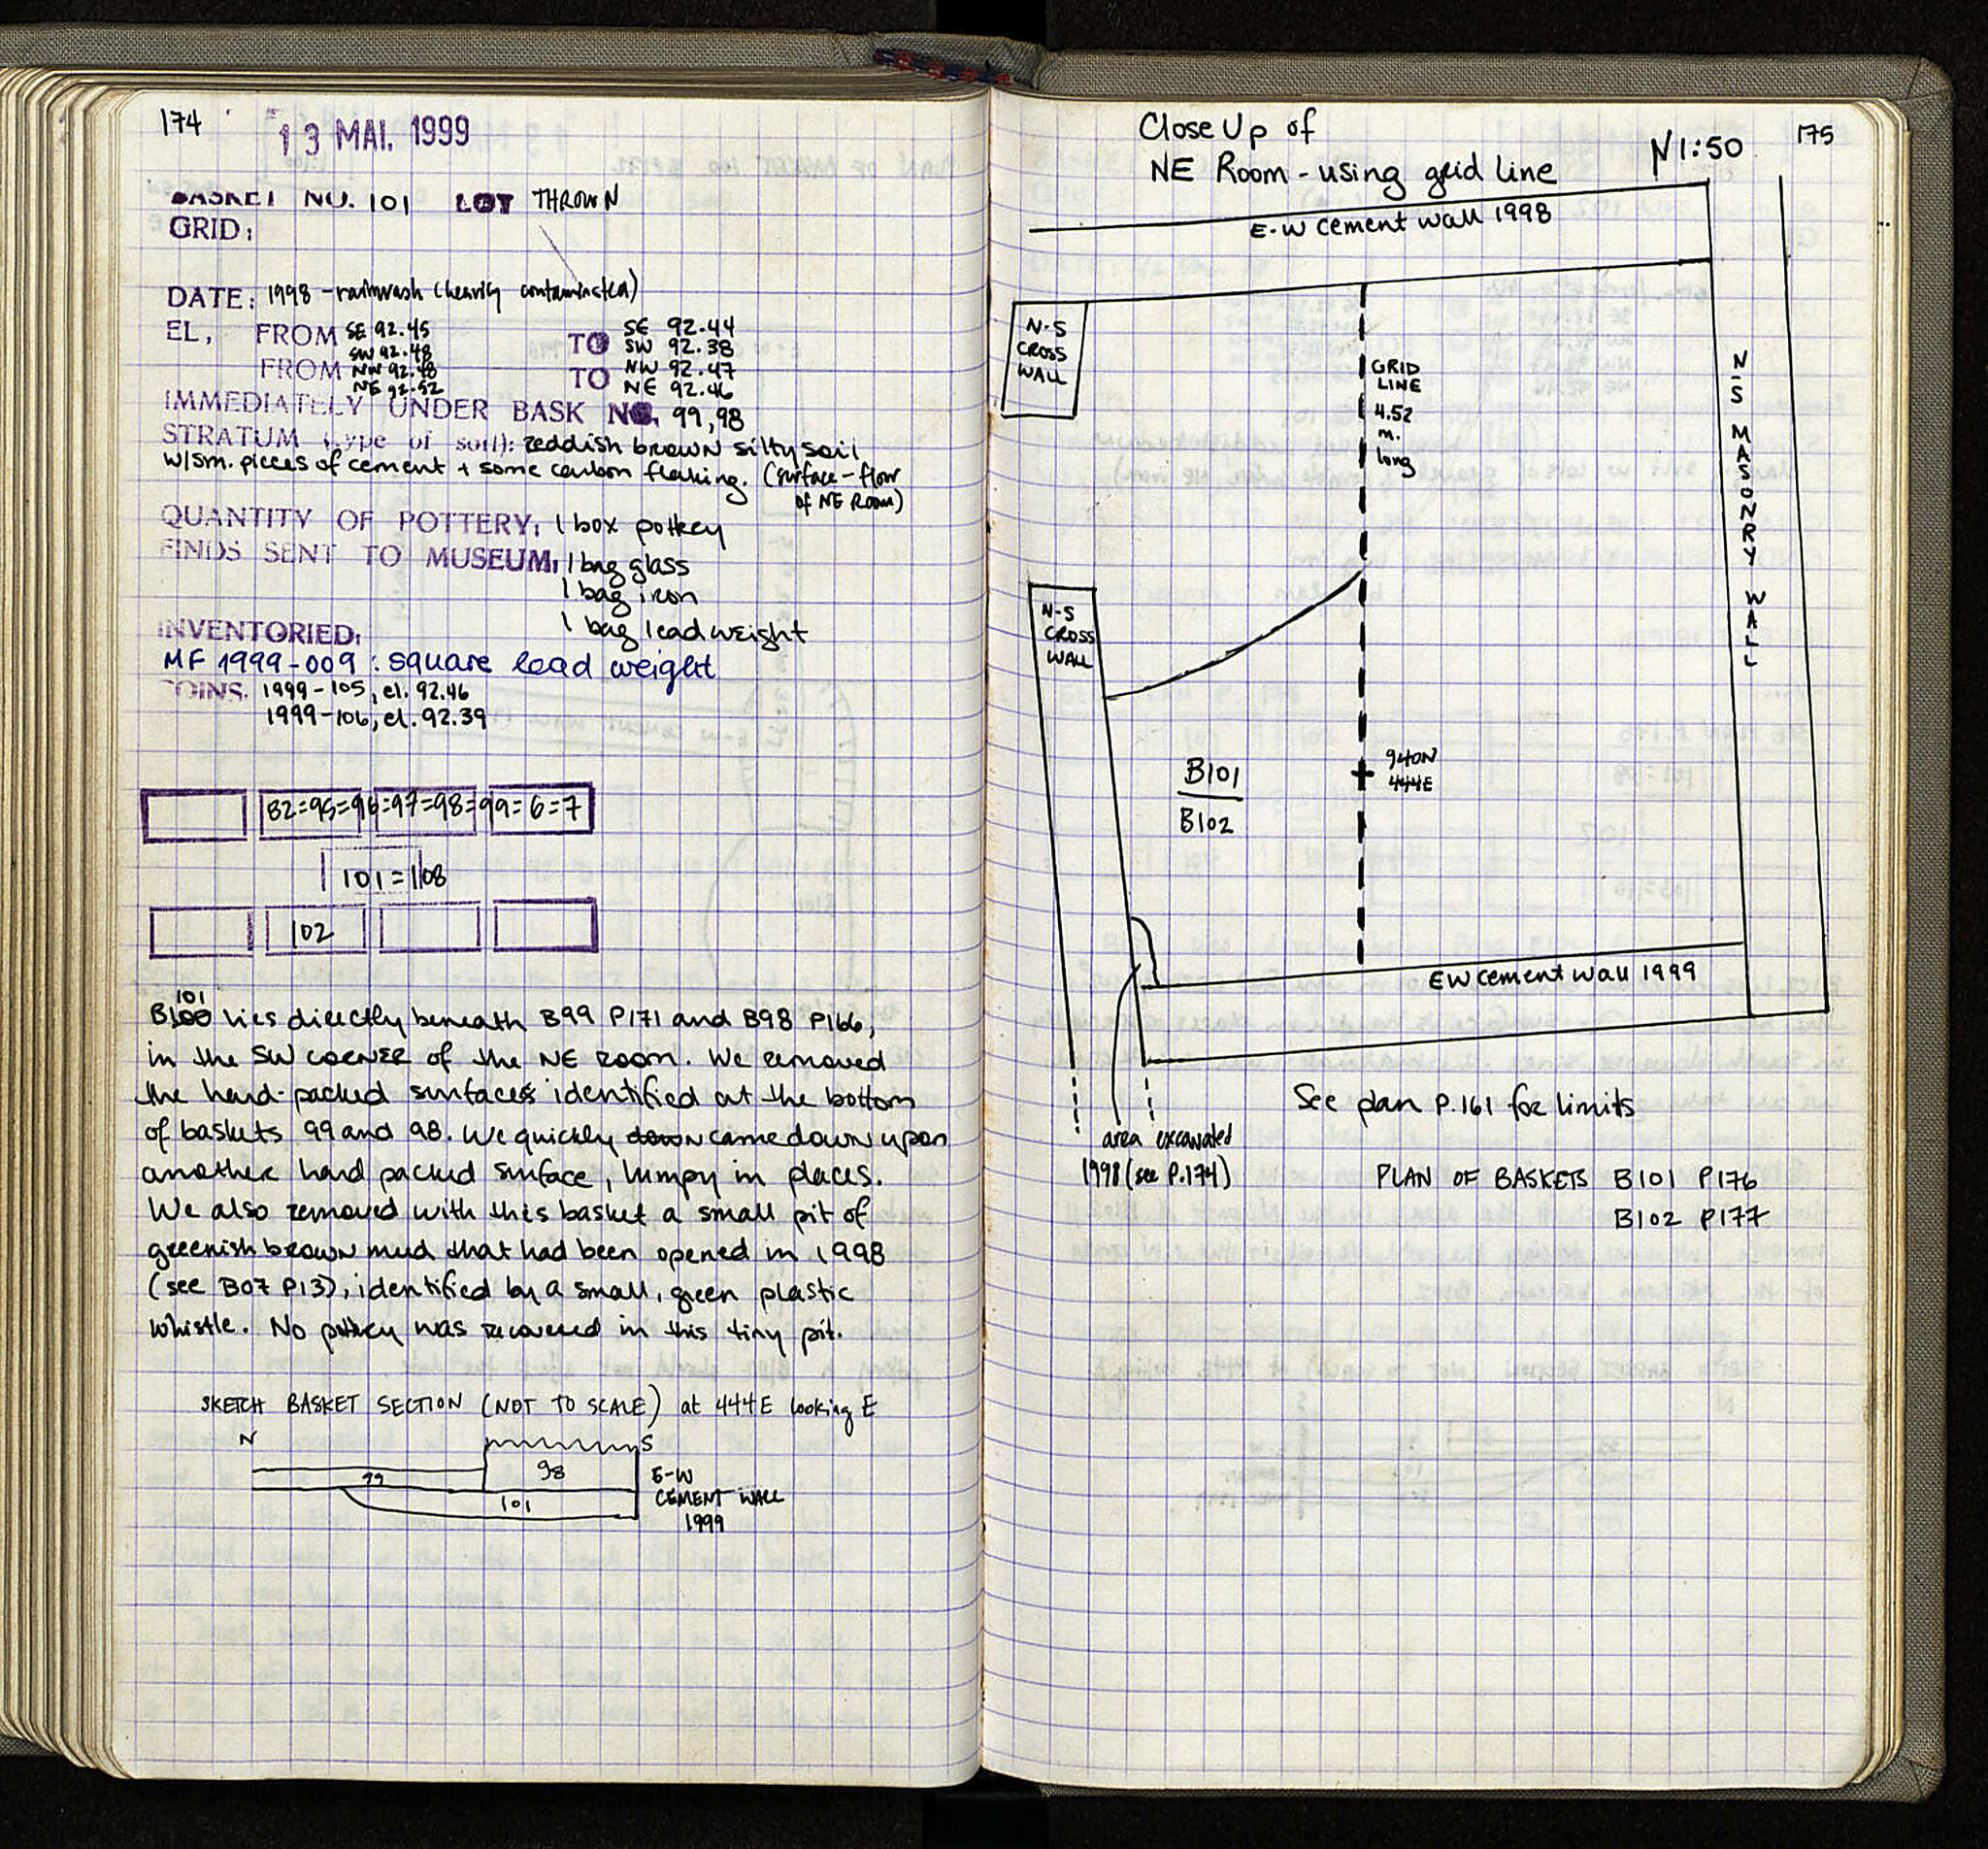 174
13 MAI. 1999
BASKET NO. 101 LOT THROWN
GRID:
DATE: 1998 - rainwash (heavily contaminated)
EL, FROM SE 92.45 TO SE 92.44
SW 92.48 SW 92.38
FROM NW 92.48 TO NW 92.47
NE 92.52 NE 92.46
IMMEDIATELY UNDER BASK NO. 99, 98
STRATUM (type of soil): reddish brown silty soil
w/sm. pieces of cement + some carbon flecking. (surface-flow
of NE Room)
QUANTITY OF POTTERY: 1 box pottery
FINDS SENT TO MUSEUM: 1 bag glass
1 bag iron
1 bag lead weight
INVENTORIED:
MF 1999-009 : square lead weight
COINS. 1999-105, el. 92.46
1999-106, el. 92.39
82=95=96=97=98=99=6=7
101=108
102
101
B100 lies directly beneath B99 P171 and B98 P166,
in the SW CORNER of the NE ROOM. We removed
the hard-packed surfaces identified at the bottom
of baskets 99 and 98. We quickly down came down upon
another hard packed surface, lumpy in places.
We also removed with this basket a small pit of
greenish brown mud that had been opened in 1998
(see B07 P13), identified by a small, green plastic
whistle. No pottery was recovered in this tiny pit.
SKETCH BASKET SECTION (NOT TO SCALE) at 444E looking E
N S
99 98
101
E-W
CEMENT WALL
1999
175
Close Up of
NE Room - using grid line
N 1:50
E-W cement wall 1998
N-S
CROSS
WALL
GRID
LINE
4.52
m.
long
N-S MASONRY WALL
N-S
CROSS
WALL
B101
B102
940N
444E
EW cement wall 1999
See plan P.161 for limits
area excavated
1998 (see P.174)
PLAN OF BASKETS B101 P176
B102 P177